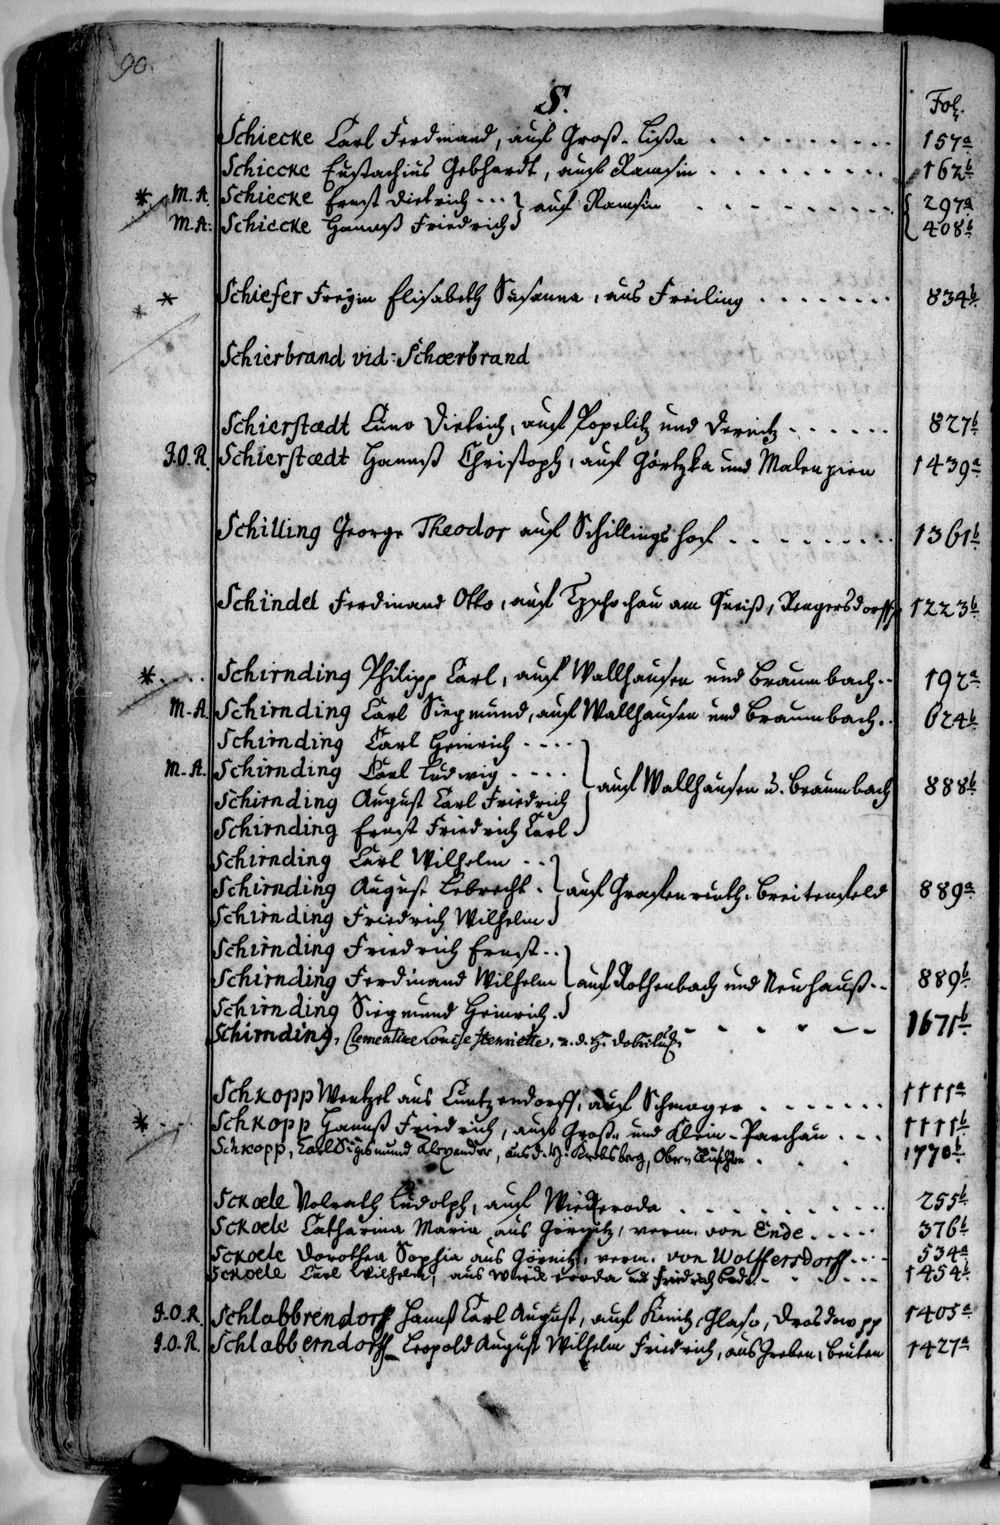 90.
S.
Fol.
Schiecke Carl Ferdinand, auf Groß-Lißa . . . . . . . . 157a
Schiecke Eustachius Gebhardt, auf Ramsin . . . . . . . . 162b
* M.A. Schiecke Ernst Dietrich . . . } auf Ramsin . . . . . . . . { 297a
M.A. Schiecke Hannß Friedrich } 408b
* Schiefer Freyin Elisabeth Susanna, aus Freiling . . . . . . . 834b
*
Schierbrand vid: Schœrbrand
Schierstædt Cuno Dietrich, auf Popelitz und Dernitz . . . . . . 827b
J.O.R. Schierstædt Hannß Christoph, auf Görtzka und Malenzien 1439a
Schilling George Theodor auf Schillingshof . . . . . . . . 1361b
Schindel Ferdinand Otto, auf Tzschochau am Queiß, Rengersdorff 1223b
* . . . Schirnding Philipp Carl, auf Wallhausen und Braumbach . . 192a
M.A. Schirnding Carl Siegmund, auf Wallhausen und Braumbach . . 624b
Schirnding Carl Heinrich . . . . }
M.A. Schirnding Carl Ludwig . . . . } auf Wallhausen u. Braumbach 888b
Schirnding August Carl Friedrich
Schirnding Ernst Friedrich Carl . }
Schirnding Carl Wilhelm . . }
Schirnding August Lebrecht . } auf Grafenrieth, Breitenfeld 889a
Schirnding Friedrich Wilhelm }
Schirnding Friedrich Ernst . . }
Schirnding Ferdinand Wilhelm } auf Rothenbach und Neuhauß . . 889b
Schirnding Siegmund Heinrich . }
Schirnding, Clementine Louise Henriette, a. d. H. Dobrilugk 1671b
Schkopp Wentzel aus Cuntzendorff, auf Schmoger . . . . . . . 1111a
* . . . Schkopp Hannß Friedrich, auf Groß- und Klein-Parchau . . . 1111b
Schkopp, Carl Sigismund Alexander, aus d. H. Krebsberg, Ober- . . . 1770b
Sckœle Volrath Ludolph, auf Wiederoda . . . . . . . . . 255b
Sckœle Catharina Maria aus Görnitz, verm. von Ende . . . . . 376b
Sckœle Dorothea Sophia aus Görnitz, verm. von Wolffersdorff . . . 534a
Sckœle Carl Wilhelm, aus Wiederoda auf Friedrichroda . . . . . . 1454b
J.O.R. Schlabbrendorff Hannß Carl August, auf Kinitz, Glaso, Drosdow pp 1405a
J.O.R. Schlabberndorff Leopold August Wilhelm Friedrich, aus Greben, Beuten 1427a